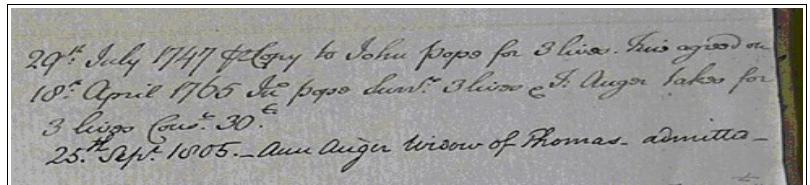 29th July 1747 Copy to John Pope for 3 lives. Fine agreed on
18th April 1765 Jno Pope Surrr. 3 lives & T. Auger takes for
3 lives Cons.n 30.£
25.th Sepr. 1805. – Ann Auger Widow of Thomas – admitted –